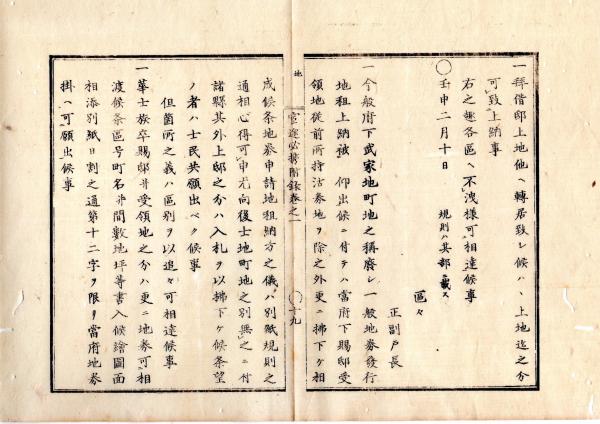 一拜借邸上地他ヘ轉居致シ候ハヽ上地迄之分
可致上納事
右之趣各區ヘ不洩樣可相達候事
〇壬申二月十日　規則ハ其部ニ載ス
區々
正副戸長
一今般府下武家地町地之稱廢シ一般地券發行
地租上納被　仰出候ニ付テハ當府下賜邸受
領地從前所持沽券地ヲ除之外更ニ拂下ケ相
地
官途必携附録卷之一
〇十九
成候条地券申請地租納方之儀ハ別紙規則之
通相心得可申尤向後士地町地之別無之ニ付
諸縣其外上邸之分ハ入札ヲ以拂下ケ候条望
ノ者ハ士民共願出ベク候事
但箇所之義ハ區別ヲ以追々可相達候事
一華士族卒賜邸并受領地之分ハ更ニ地券可相
渡候条區号町名并間數地坪等書入候繪圖面
相添別紙日割之通第十二字ヲ限リ當府地券
掛ヘ可願出候事